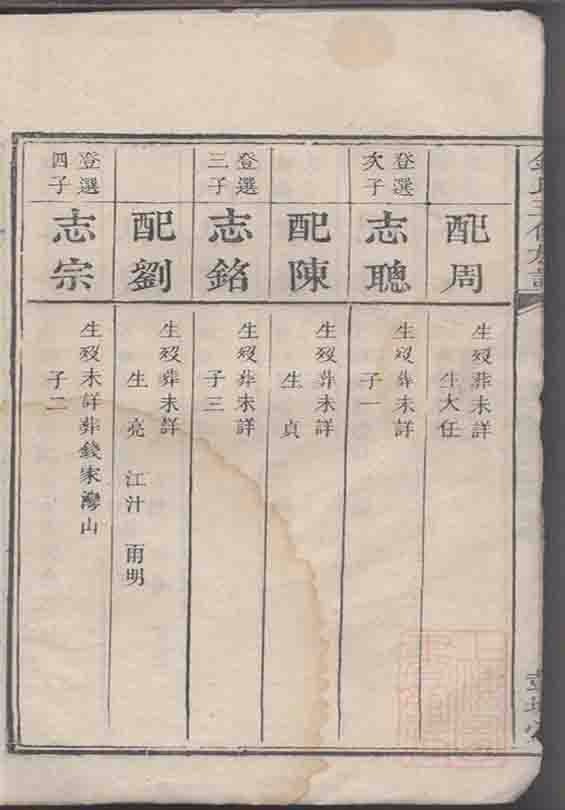 配周
生歿葬未詳
生大任
登選
次子
志聰
生歿葬未詳
子一
配陳
生歿葬未詳
生貞
登選
三子
志銘
生歿葬未詳
子三
配劉
生歿葬未詳
生亮 江汁 雨明
登選
四子
志宗
生歿未詳葬錢家灣山
子二